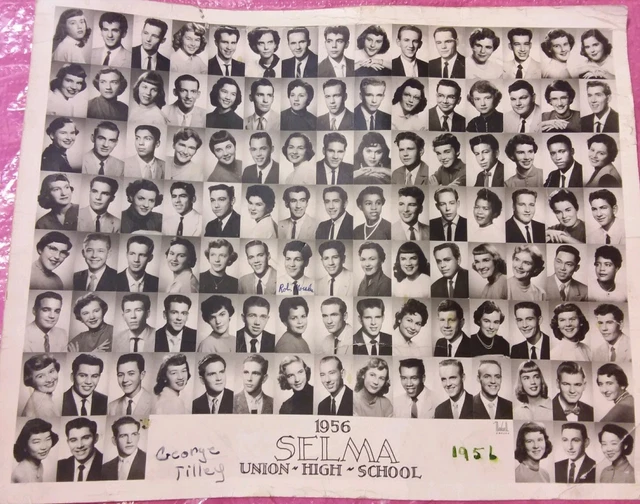 1956
SELMA
UNION-HIGH-SCHOOL
George
Tilley
1956